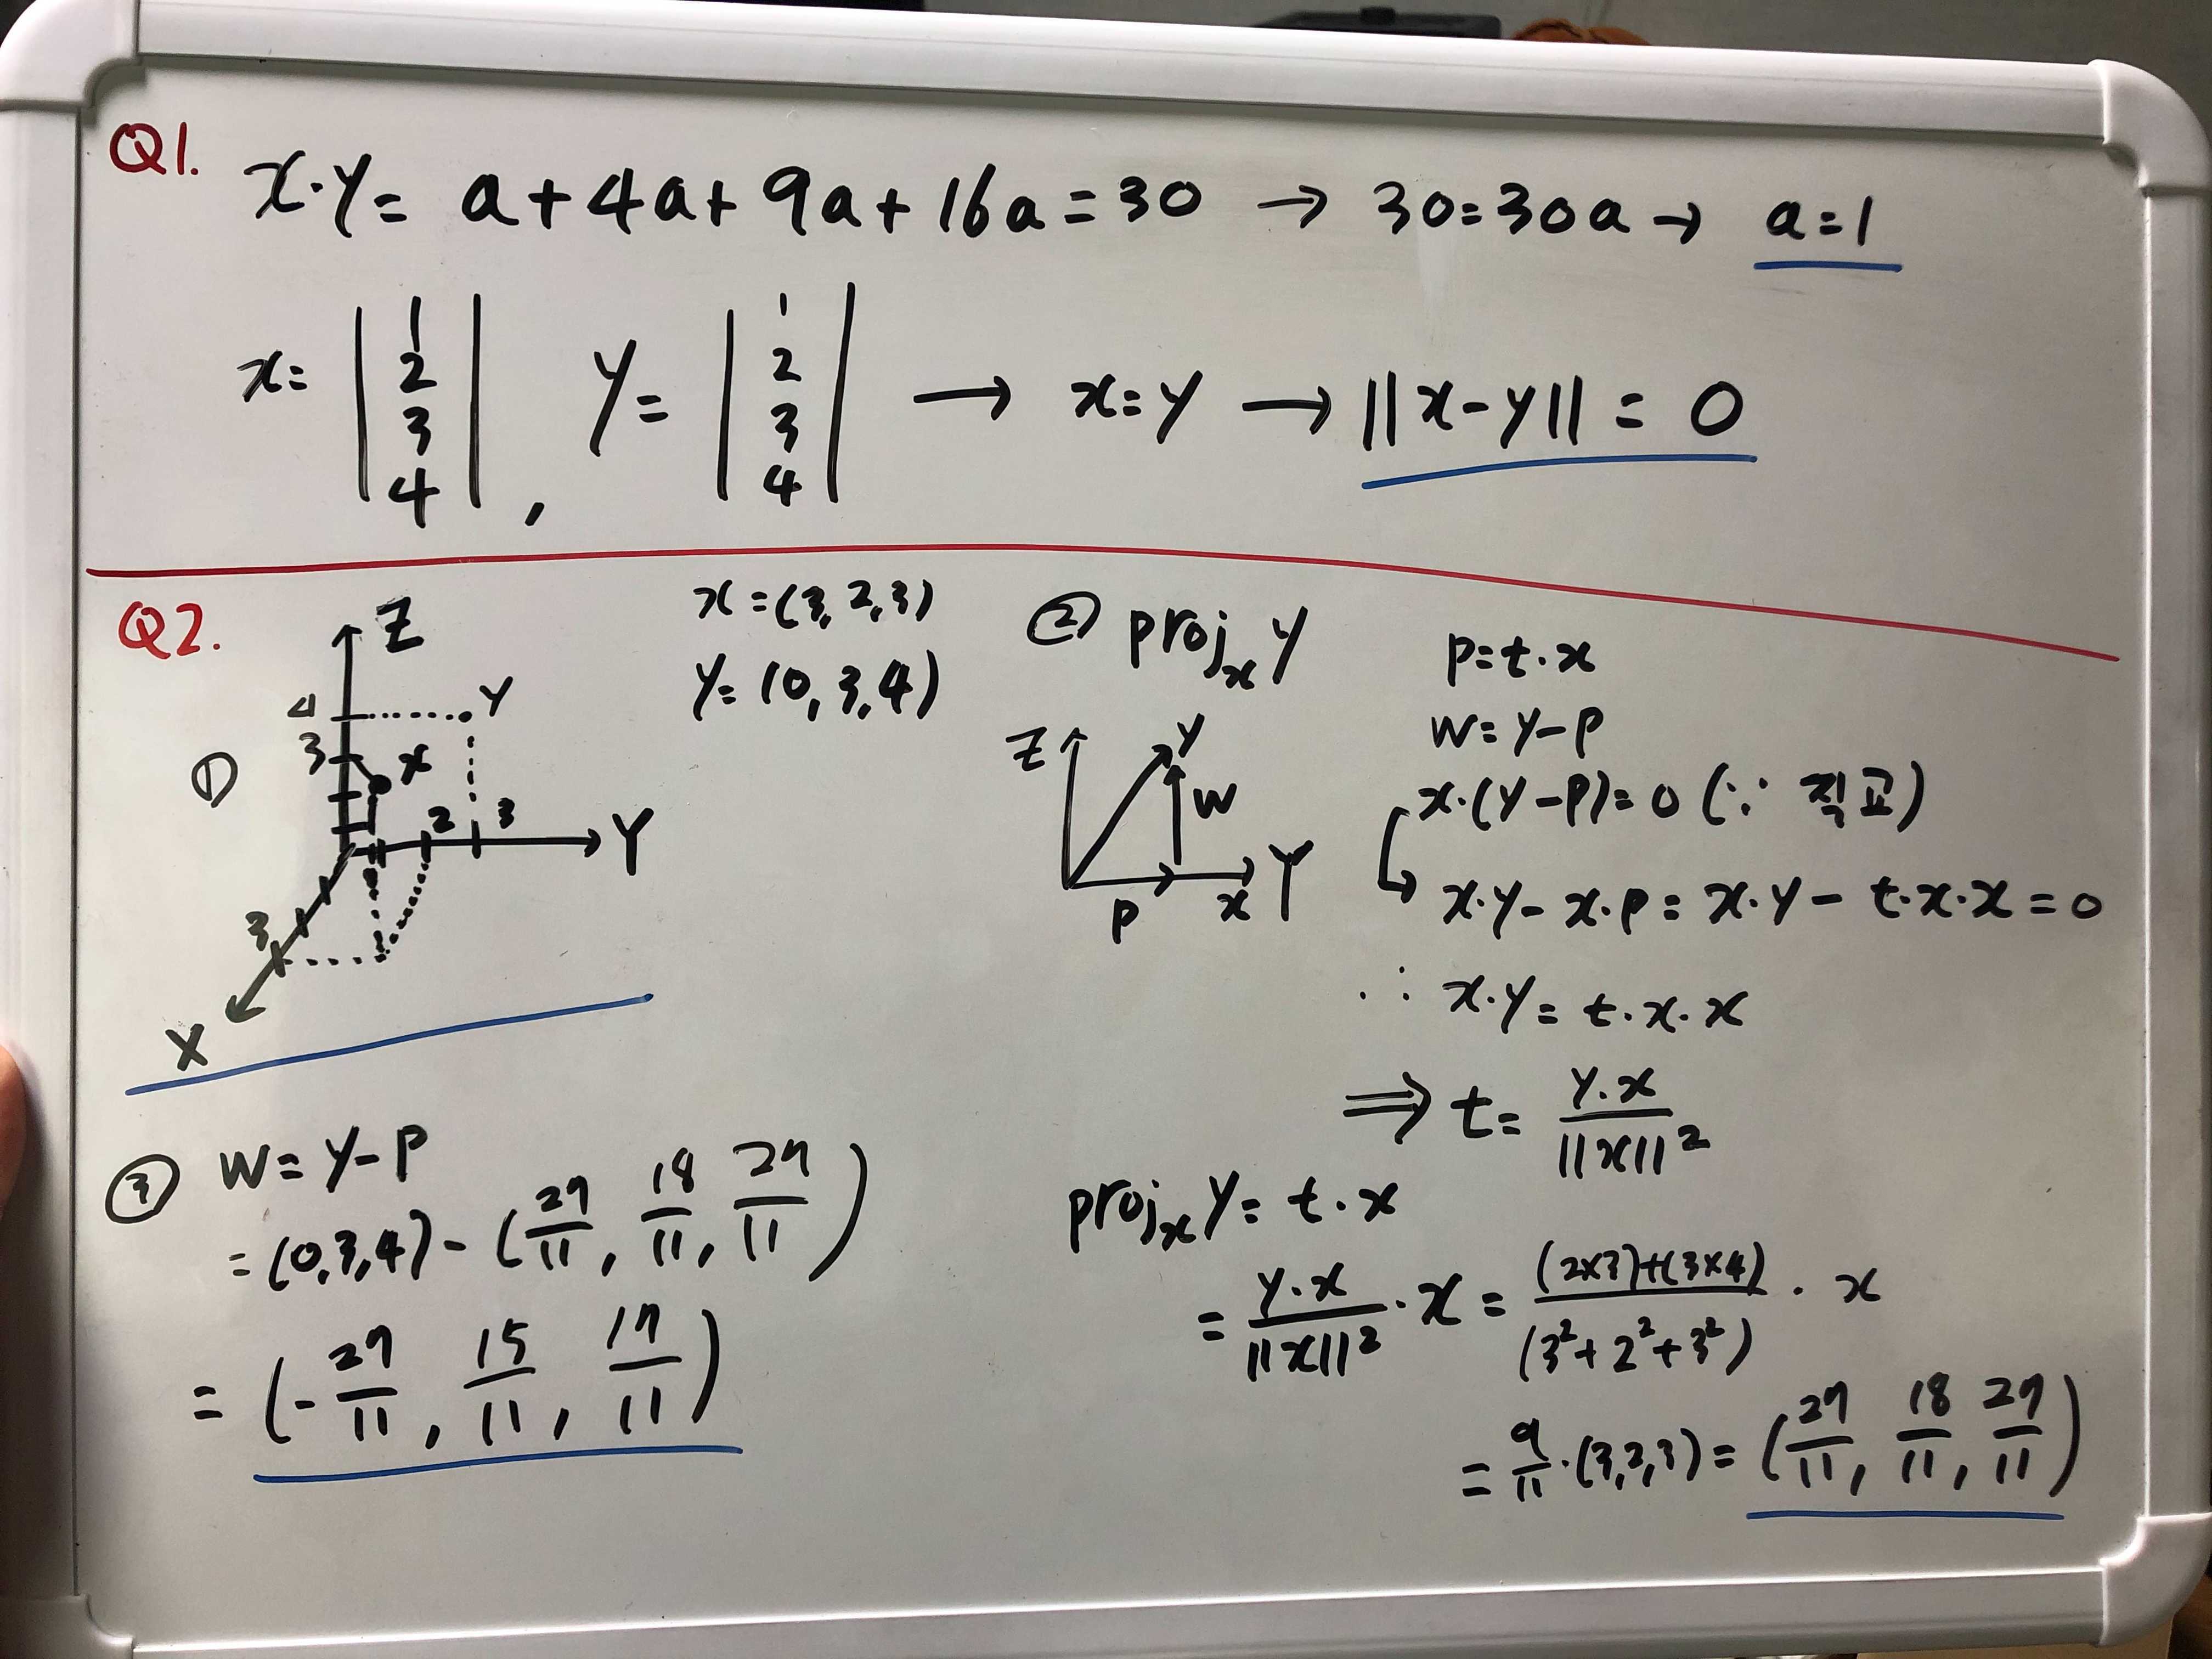 Q1.
x·y = a+4a+9a+16a=30 → 30=30a → a=1
x= | 1 2 3 4 | , y= | 1 2 3 4 | → x=y → ||x-y|| = 0
Q2.
①
Z
4
3
y
x
2 3
Y
3
X
x=(3,2,3)
y=(0,3,4)
② projₓy
Z
y
w
p
x
Y
p=t·x
w=y-p
x·(y-p)=0 (∵ 직교)
x·y-x·p=x·y-t·x·x=0
∴ x·y=t·x·x
⇒ t= y·x / ||x||²
projₓy=t·x
= y·x / ||x||² · x = (2×3)+(3×4) / (3²+2²+3²) · x
= 9/11 · (3,2,3) = (27/11, 18/11, 27/11)
③ w=y-p
=(0,3,4)-(27/11, 18/11, 27/11)
= (-27/11, 15/11, 17/11)